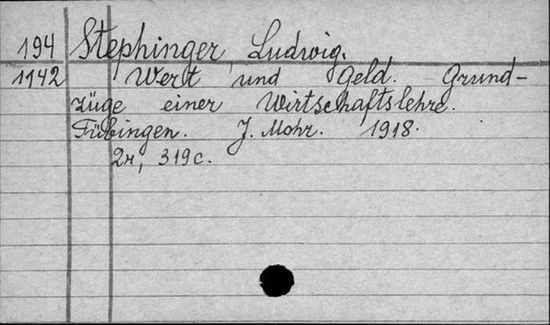 194 Stephinger, Ludwig.
1142 Wert und Geld. Grund-
züge einer Wirtschaftslehre.
Tübingen. J. Mohr. 1918.
2н, 319с.